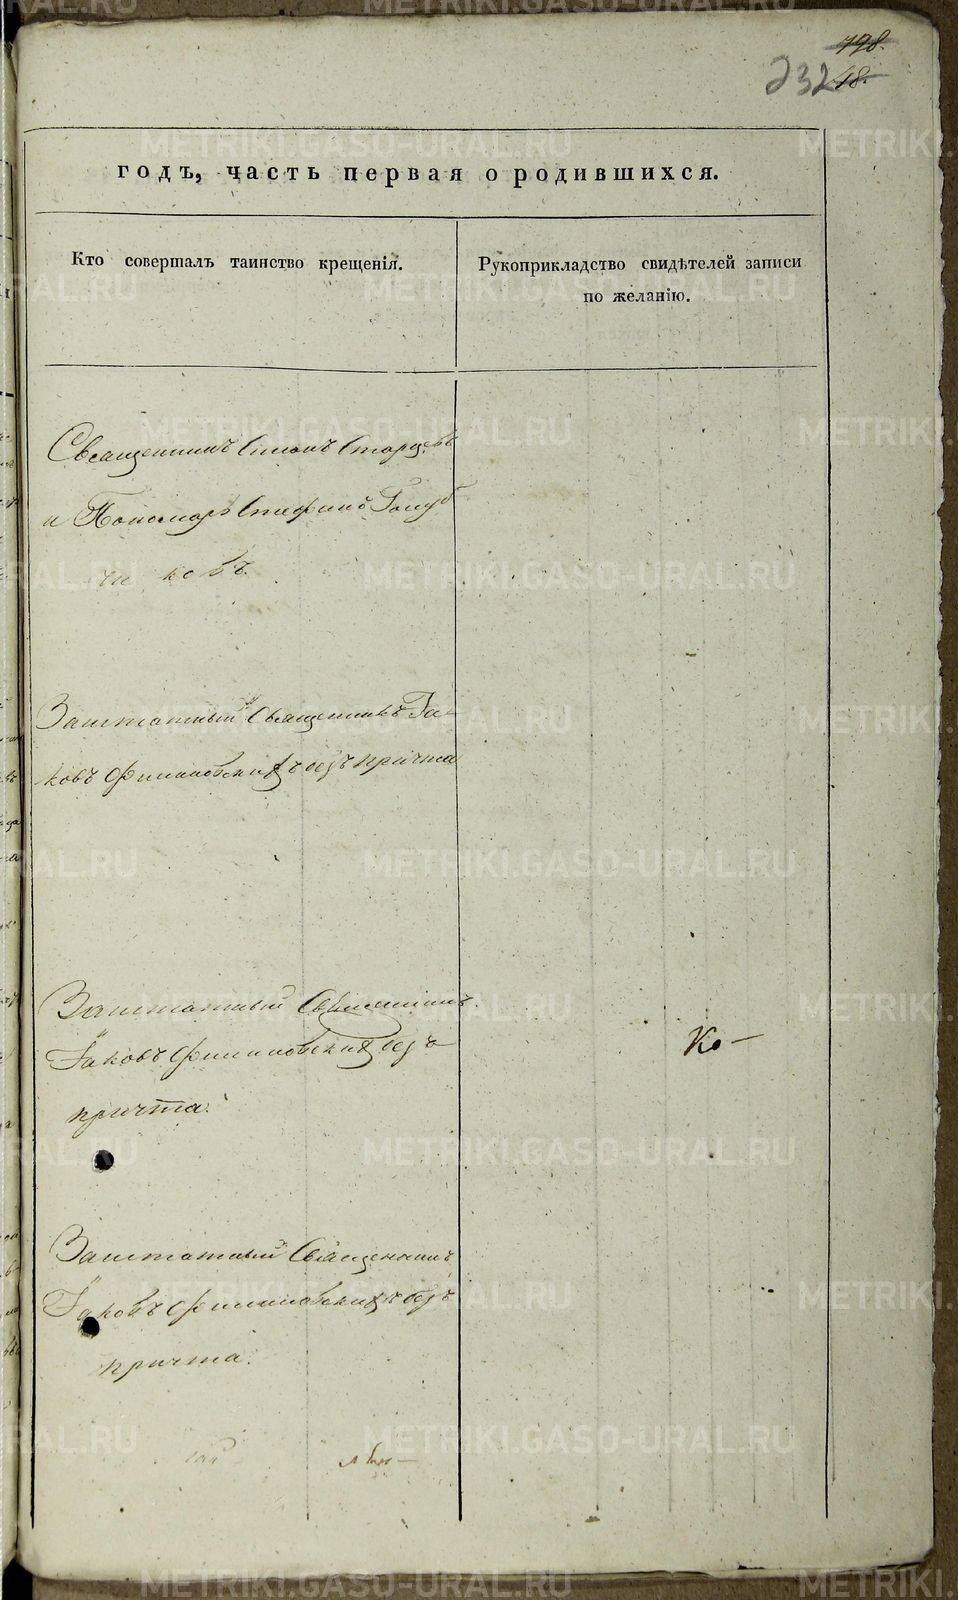 798.
232 48.
годъ, часть первая о родившихся.
Кто совершалъ таинство крещенія.
Рукоприкладство свидѣтелей записи
по желанію.
Священникъ Симонъ Старцевъ
и Пономарь Стефанъ Голуб
чиковъ.
Заштатный Священникъ Іа-
ковъ Филановскихъ безъ причта
Заштатный Священникъ
Іаковъ Филановскихъ безъ
причта.
Ко-
Заштатный Священникъ
Іаковъ Филановскихъ безъ
причта.
METRIKI.GASO-URAL.RU